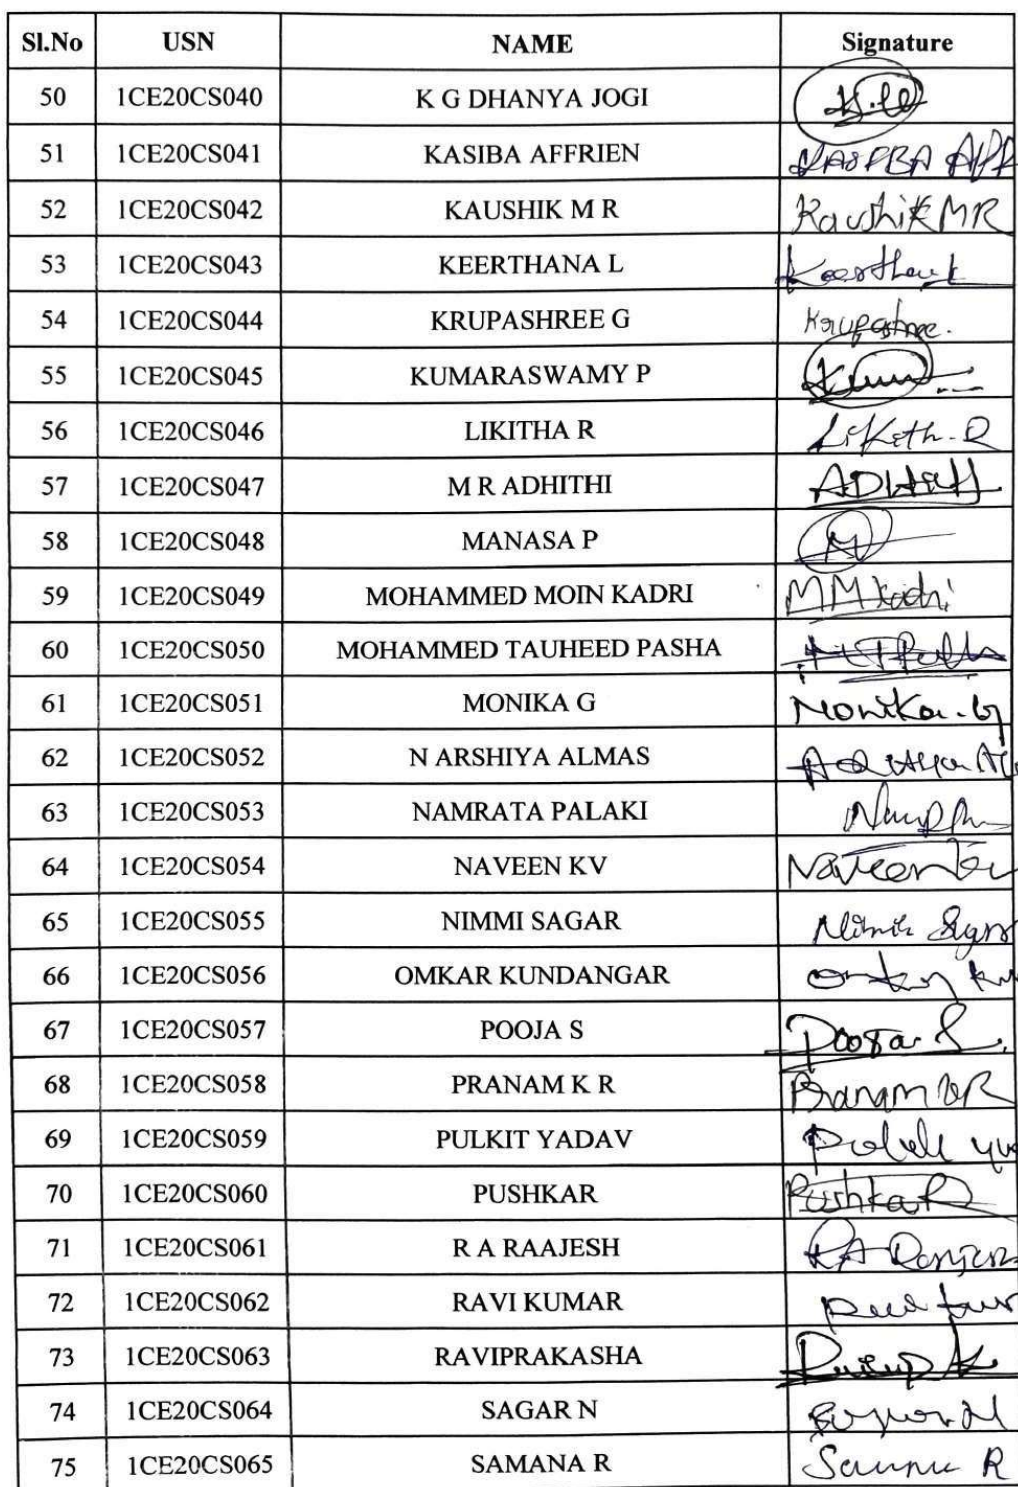 Sl.No USN NAME Signature
50 1CE20CS040 K G DHANYA JOGI
51 1CE20CS041 KASIBA AFFRIEN
52 1CE20CS042 KAUSHIK M R Kaushik MR
53 1CE20CS043 KEERTHANA L
54 1CE20CS044 KRUPASHREE G Krupashree.
55 1CE20CS045 KUMARASWAMY P
56 1CE20CS046 LIKITHA R
57 1CE20CS047 M R ADHITHI
58 1CE20CS048 MANASA P
59 1CE20CS049 MOHAMMED MOIN KADRI MM Kadri
60 1CE20CS050 MOHAMMED TAUHEED PASHA
61 1CE20CS051 MONIKA G Monika.G
62 1CE20CS052 N ARSHIYA ALMAS
63 1CE20CS053 NAMRATA PALAKI
64 1CE20CS054 NAVEEN KV
65 1CE20CS055 NIMMI SAGAR
66 1CE20CS056 OMKAR KUNDANGAR
67 1CE20CS057 POOJA S Pooja. S.
68 1CE20CS058 PRANAM K R Pranam KR
69 1CE20CS059 PULKIT YADAV
70 1CE20CS060 PUSHKAR PushkaR
71 1CE20CS061 R A RAAJESH
72 1CE20CS062 RAVI KUMAR
73 1CE20CS063 RAVIPRAKASHA
74 1CE20CS064 SAGAR N
75 1CE20CS065 SAMANA R